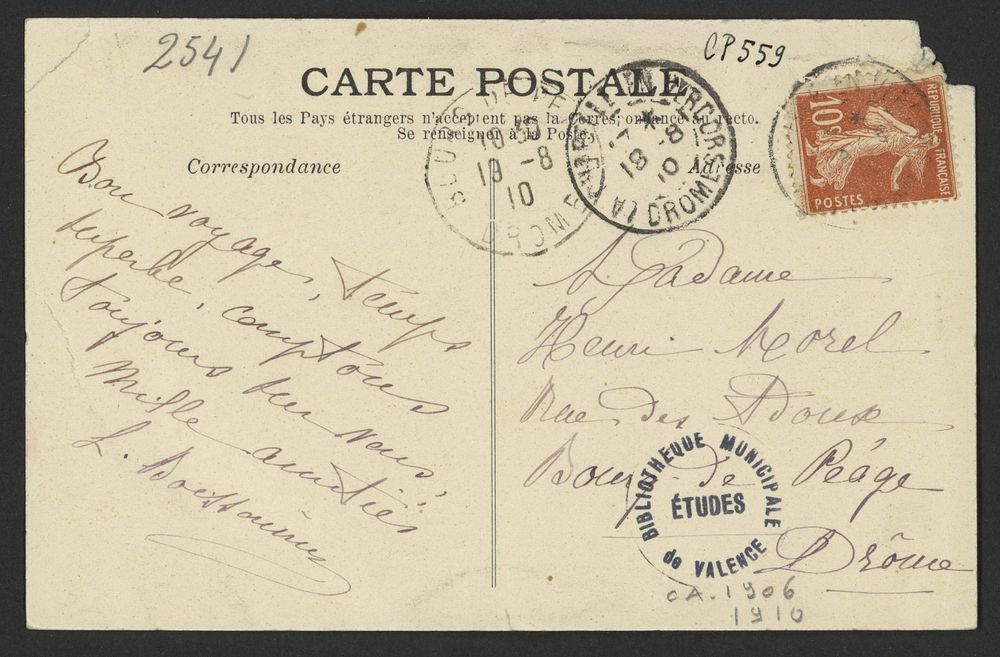 2541
CP 559
CARTE POSTALE
Tous les Pays étrangers n'acceptent pas la Correspondance au recto.
Se renseigner à la Poste.
Correspondance
Adresse
10 30
18 -8
10
DROME
LA CHAPELLE EN VERCORS
17 *
18 -8
10
(DROME)
REPUBLIQUE FRANÇAISE
10c
POSTES
Bon voyage, temps
superbe, comptons
toujours sur vous,
Mille amitiés
L.
Madame
Henri Morel
Rue des Doux
Bourg-de-Péage
Drôme
BIBLIOTHEQUE MUNICIPALE
ÉTUDES
de VALENCE
CA. 1906
1910